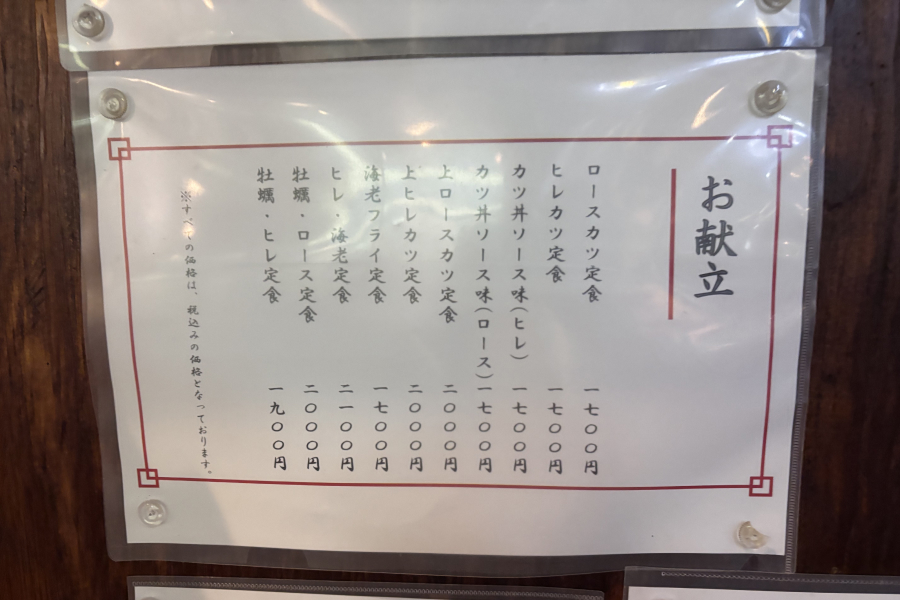 お献立
ロースカツ定食 一七〇〇円
ヒレカツ定食 一七〇〇円
カツ丼ソース味(ヒレ) 一七〇〇円
カツ丼ソース味(ロース) 一七〇〇円
上ロースカツ定食 二〇〇〇円
上ヒレカツ定食 二〇〇〇円
海老フライ定食 一七〇〇円
ヒレ・海老定食 二一〇〇円
牡蠣・ロース定食 二〇〇〇円
牡蠣・ヒレ定食 一九〇〇円
※すべての価格は、税込みの価格となっております。